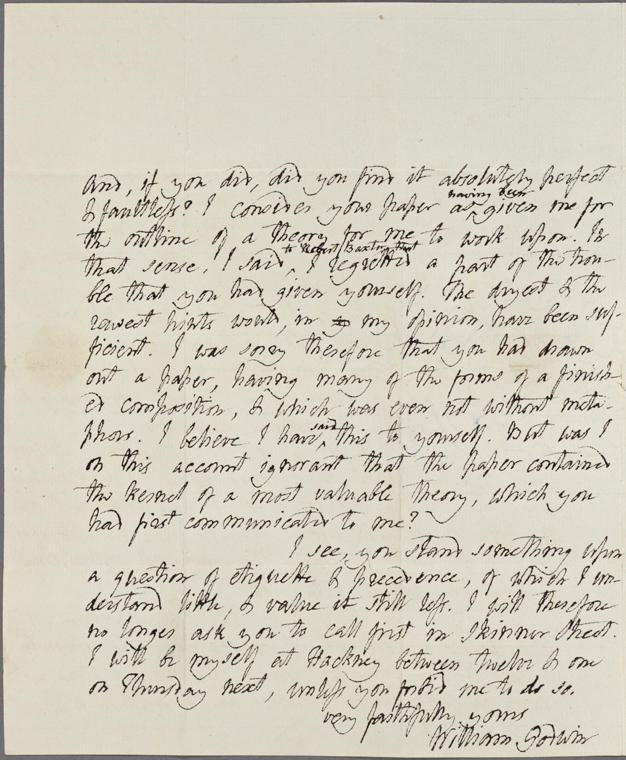 And, if you did, did you find it absolutely perfect
& faultless? I consider your paper as having been given me for
the outline of a theory for me to work upon. In
that sense, I said to Robert Baxter, that I regretted a part of the trou-
ble that you had given yourself. The dryest & the
rawest hints would, in my opinion, have been suf-
ficient. I was sorry therefore that you had drawn
out a paper, having many of the forms of a finish-
ed composition, & which was even not without meta-
phor. I believe I have said this to yourself. But was I
on this account ignorant that the paper contained
the kernel of a most valuable theory, which you
had first communicated to me?
I see, you stand something upon
a question of etiquette & precedence, of which I un-
derstand little, & value it still less. I will therefore
no longer ask you to call first in Skinner Street.
I will be myself at Hackney between twelve & one
on Thursday next, unless you forbid me to do so.
very faithfully yours
William Godwin